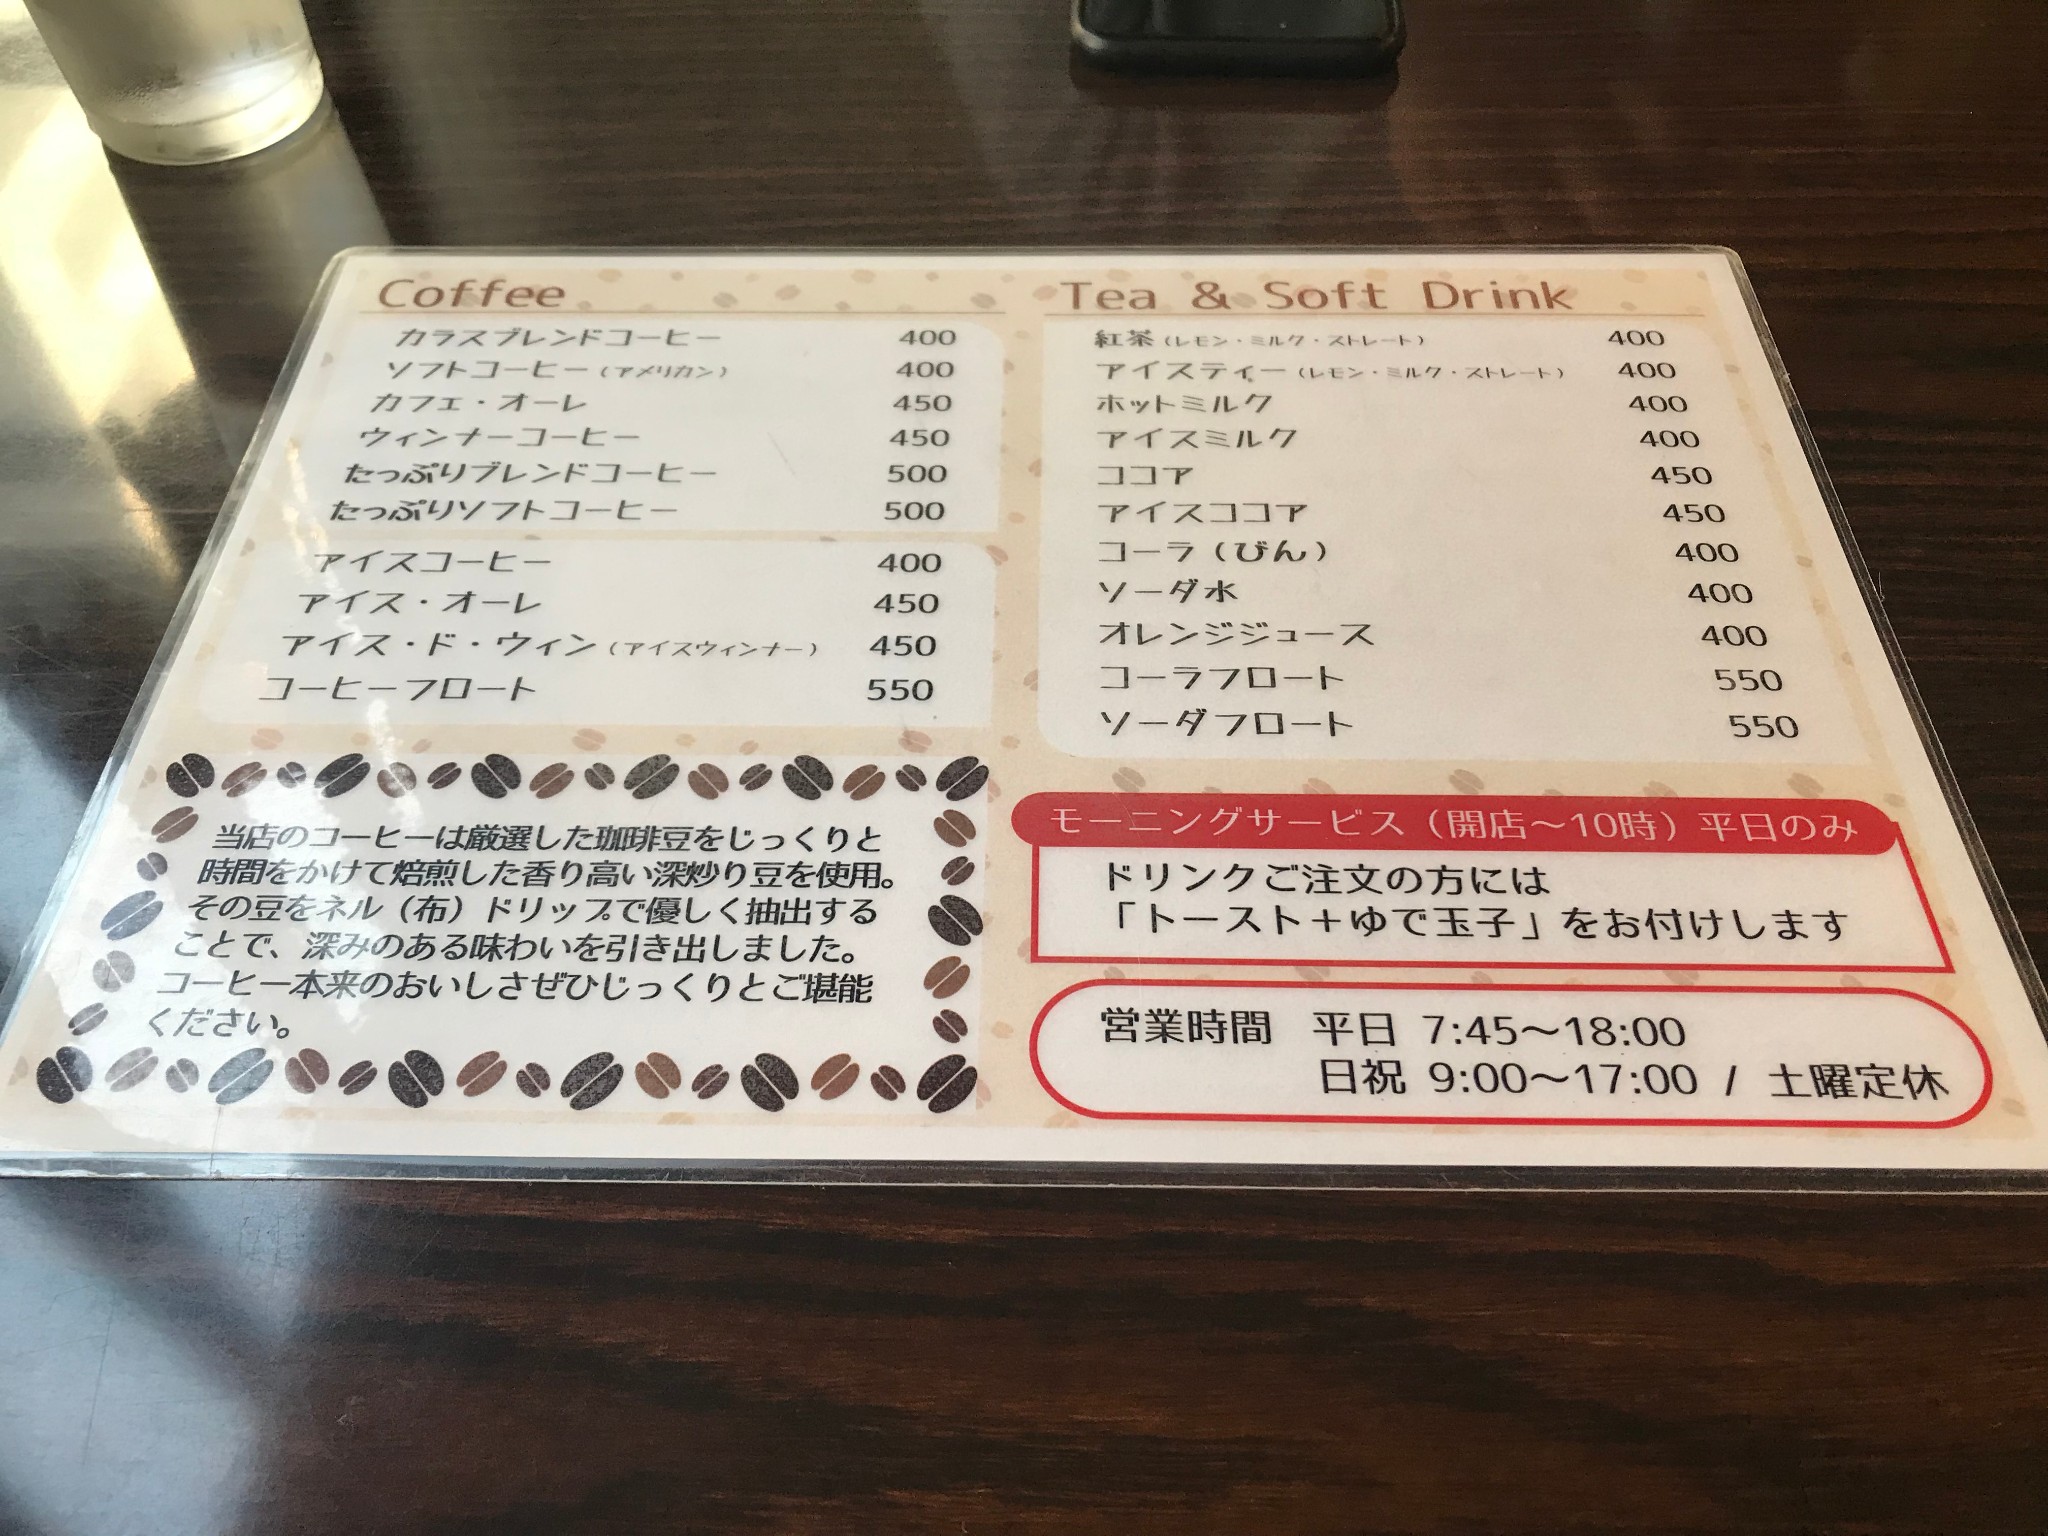 Coffee
カラスブレンドコーヒー 400
ソフトコーヒー（アメリカン） 400
カフェ・オーレ 450
ウィンナーコーヒー 450
たっぷりブレンドコーヒー 500
たっぷりソフトコーヒー 500
アイスコーヒー 400
アイス・オーレ 450
アイス・ド・ウィン（アイスウィンナー） 450
コーヒーフロート 550
当店のコーヒーは厳選した珈琲豆をじっくりと
時間をかけて焙煎した香り高い深炒り豆を使用。
その豆をネル（布）ドリップで優しく抽出する
ことで、深みのある味わいを引き出しました。
コーヒー本来のおいしさぜひじっくりとご堪能
ください。
Tea & Soft Drink
紅茶（レモン・ミルク・ストレート） 400
アイスティー（レモン・ミルク・ストレート） 400
ホットミルク 400
アイスミルク 400
ココア 450
アイスココア 450
コーラ（びん） 400
ソーダ水 400
オレンジジュース 400
コーラフロート 550
ソーダフロート 550
モーニングサービス（開店～10時）平日のみ
ドリンクご注文の方には
「トースト＋ゆで玉子」をお付けします
営業時間 平日 7:45～18:00
日祝 9:00～17:00 / 土曜定休